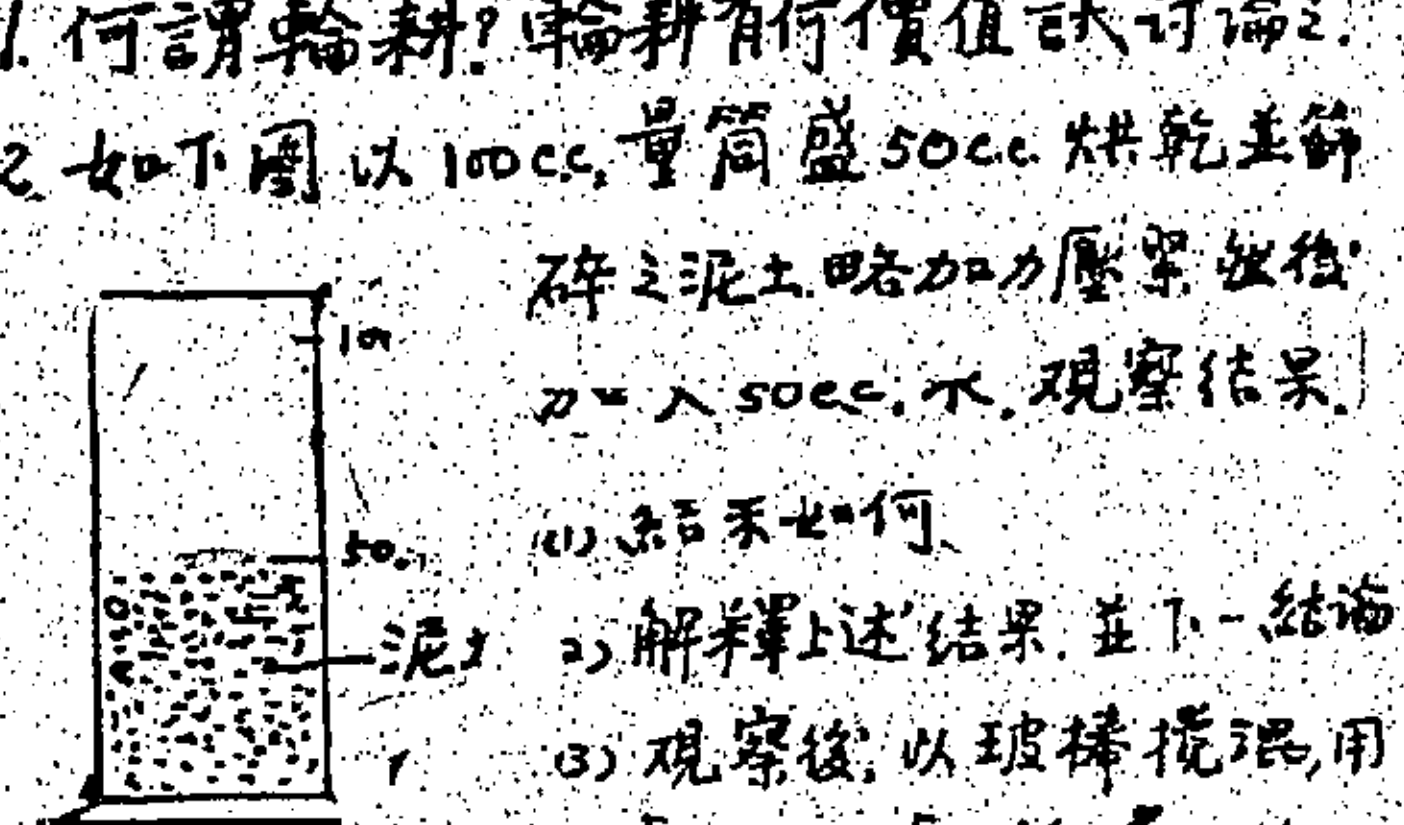 1. 何謂輪耕?輪耕有何價值試討論之.
2. 如下圖以100c.c.量筒盛50c.c.烘乾並篩
碎之泥土略加力壓緊然後
加入50c.c.水.觀察结果.
100
50
泥土
(1) 結果如何
2) 解釋上述结果.並下一結論
(3) 观察後,以玻棒攪混,用